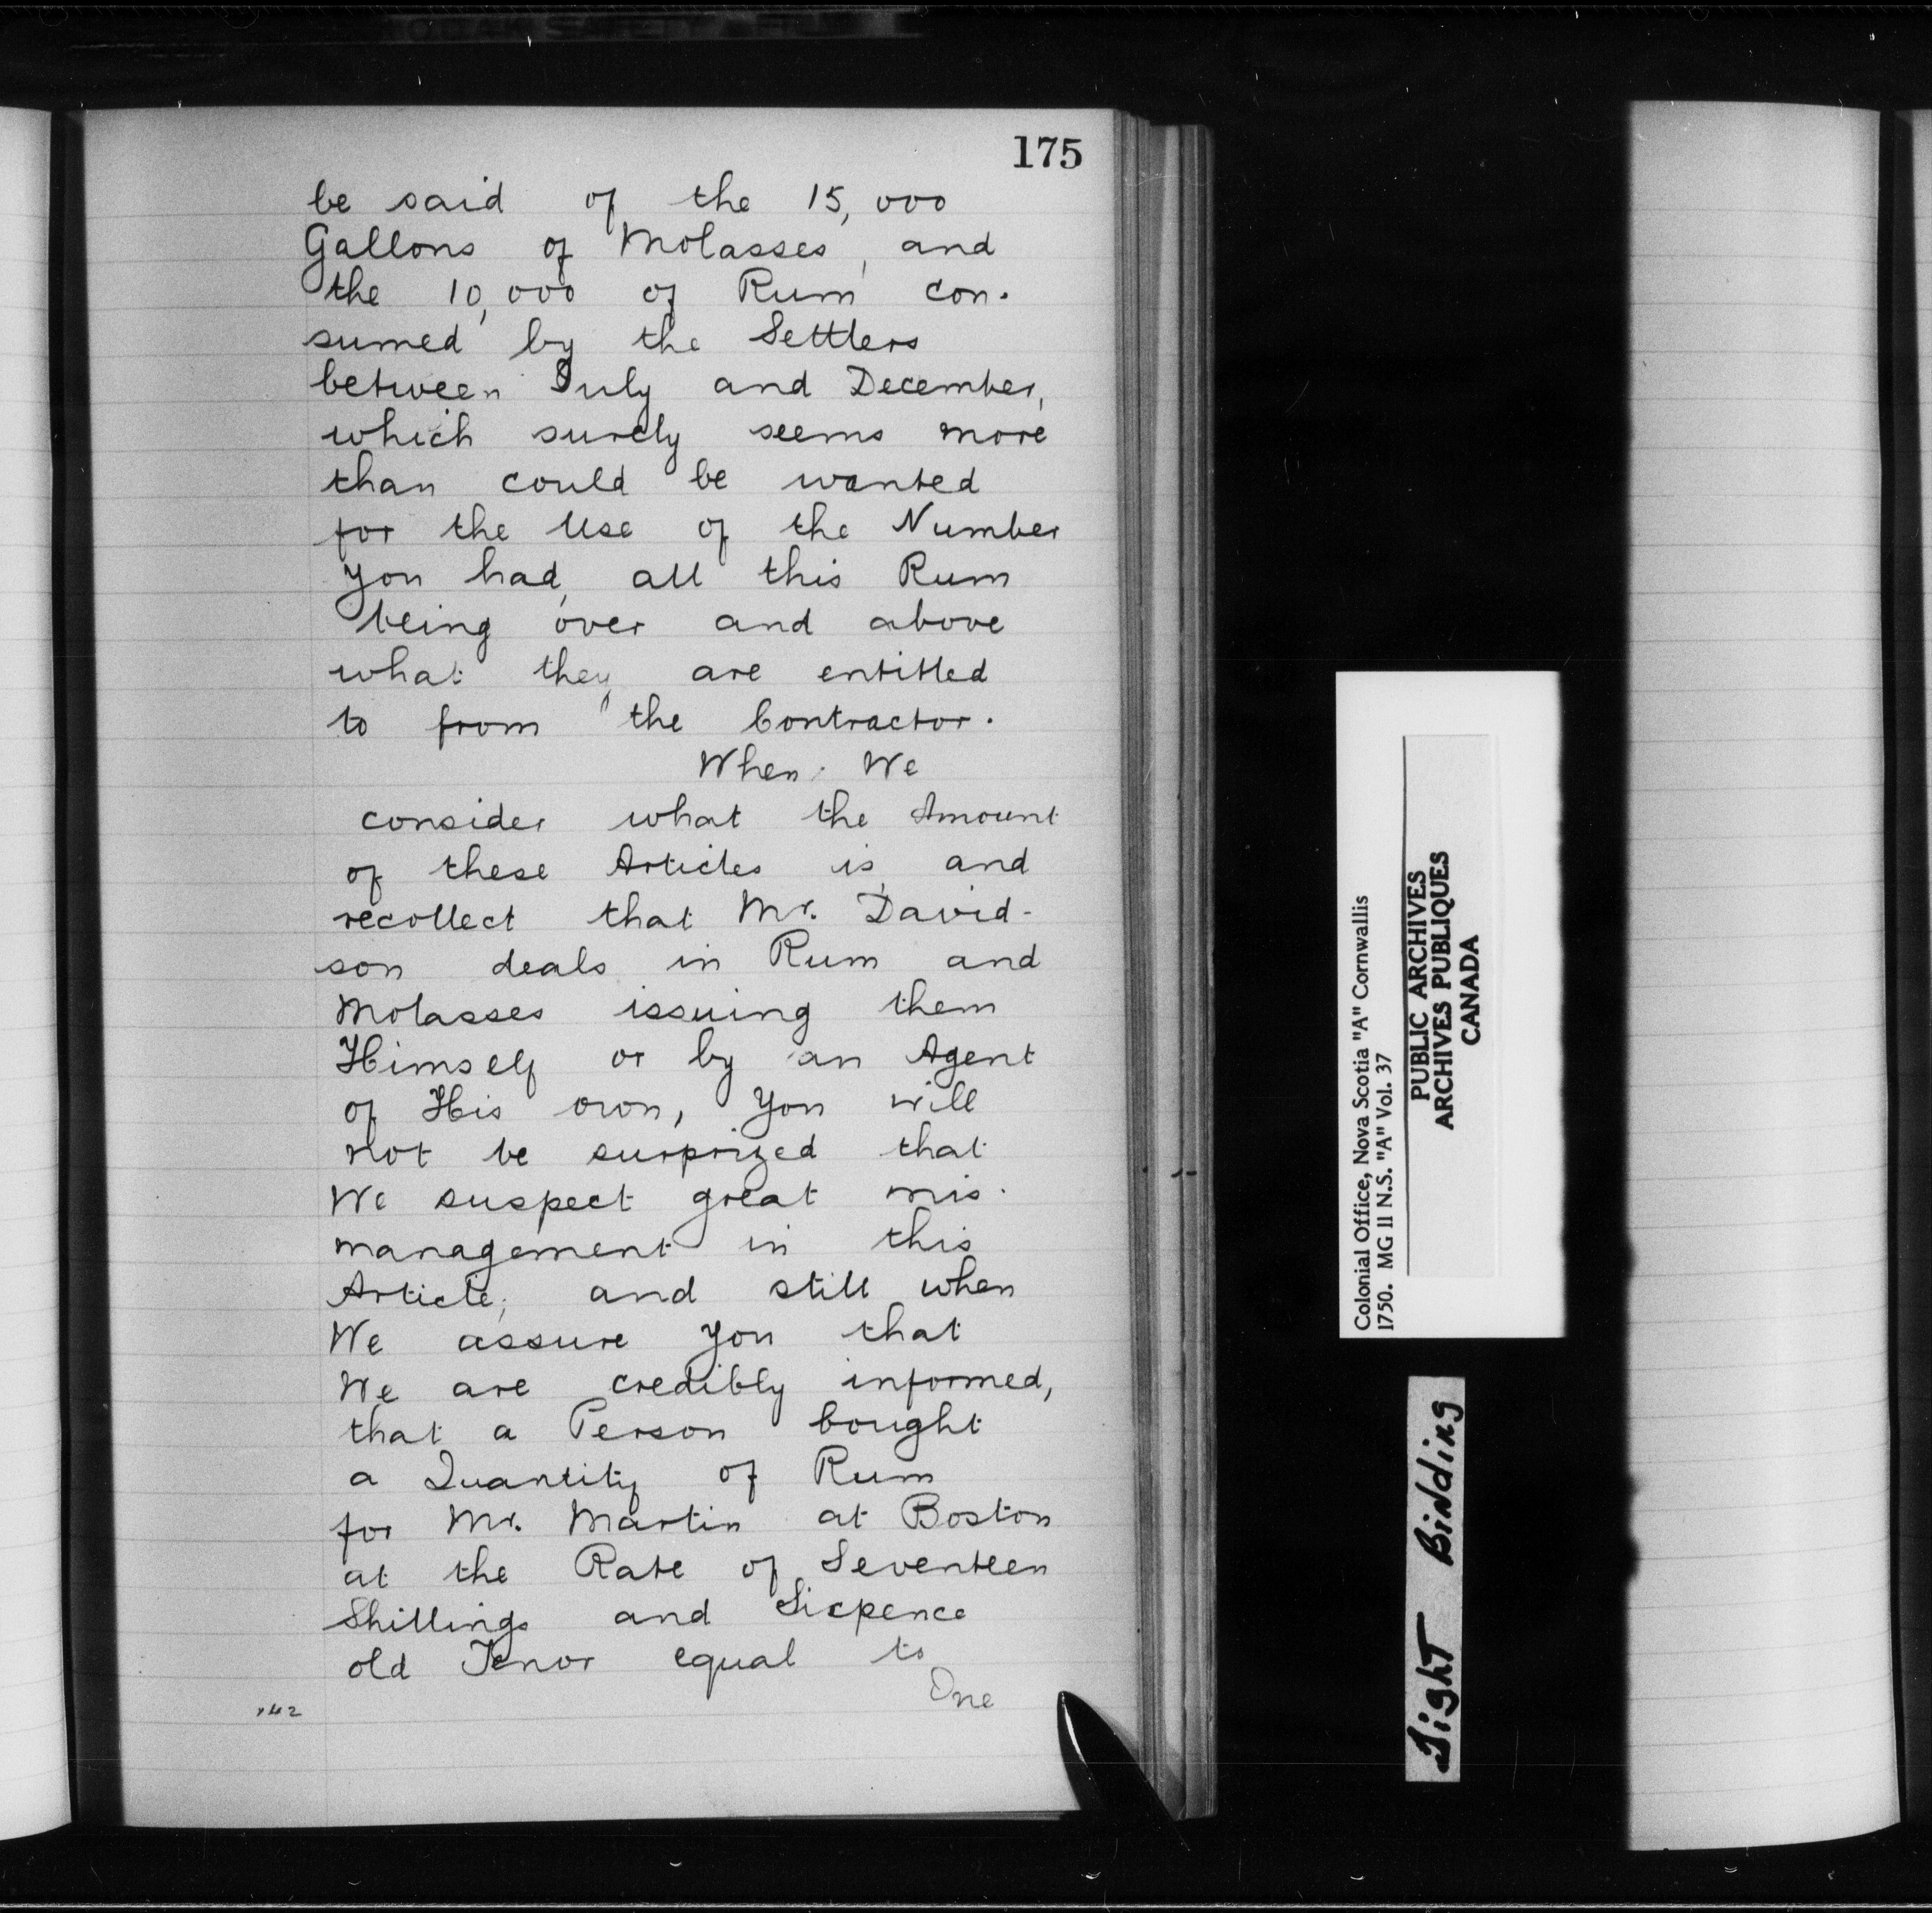 175
be said of the 15,000
Gallons of Molasses, and
the 10,000 of Rum con-
sumed by the Settlers
between July and December,
which surely seems more
than could be wanted
for the Use of the Number
You had, all this Rum
being over and above
what they are entitled
to from the Contractor.
When We
consider what the Amount
of these Articles is, and
recollect that Mr. David-
son deals in Rum and
Molasses issuing them
Himself or by an Agent
of His own, You will
not be surprized that
We suspect great mis-
management in this
Article; and still when
We assure You that
We are credibly informed,
that a Person bought
a Quantity of Rum
for Mr. Martin at Boston
at the Rate of Seventeen
Shillings and Sixpence
old Tenor equal to
One
Colonial Office, Nova Scotia "A" Cornwallis
1750. MG II N.S. "A" Vol. 37
PUBLIC ARCHIVES
ARCHIVES PUBLIQUES
CANADA
Tight Binding